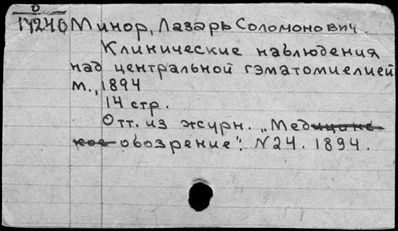 D
17240 Минор, Лазарь Соломонович.
Клинические наблюдения
над центральной гэматомиелией
М., 1894
14 стр.
Отт. из журн. „Медицинское
обозрение". N24. 1894.